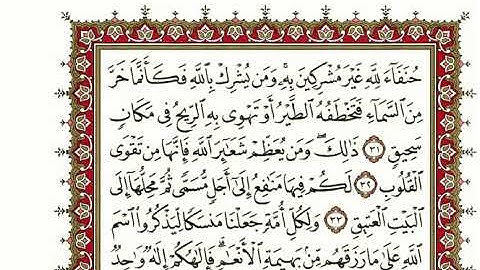 حُنَفَآءَ لِلَّهِ غَيْرَ مُشْرِكِينَ بِهِۦۚ وَمَن يُشْرِكْ بِٱللَّهِ فَكَأَنَّمَا خَرَّ
مِنَ ٱلسَّمَآءِ فَتَخْطَفُهُ ٱلطَّيْرُ أَوْ تَهْوِى بِهِ ٱلرِّيحُ فِى مَكَانٍ
سَحِيقٍ ٣١ ذَٰلِكَۖ وَمَن يُعَظِّمْ شَعَٰٓئِرَ ٱللَّهِ فَإِنَّهَا مِن تَقْوَى
ٱلْقُلُوبِ ٣٢ لَكُمْ فِيهَا مَنَٰفِعُ إِلَىٰٓ أَجَلٍ مُّسَمًّى ثُمَّ مَحِلُّهَآ إِلَى
ٱلْبَيْتِ ٱلْعَتِيقِ ٣٣ وَلِكُلِّ أُمَّةٍ جَعَلْنَا مَنسَكًا لِّيَذْكُرُوا۟ ٱسْمَ
ٱللَّهِ عَلَىٰ مَا رَزَقَهُم مِّنۢ بَهِيمَةِ ٱلْأَنْعَٰمِۗ فَإِلَٰهُكُمْ إِلَٰهٌ وَٰحِدٌ